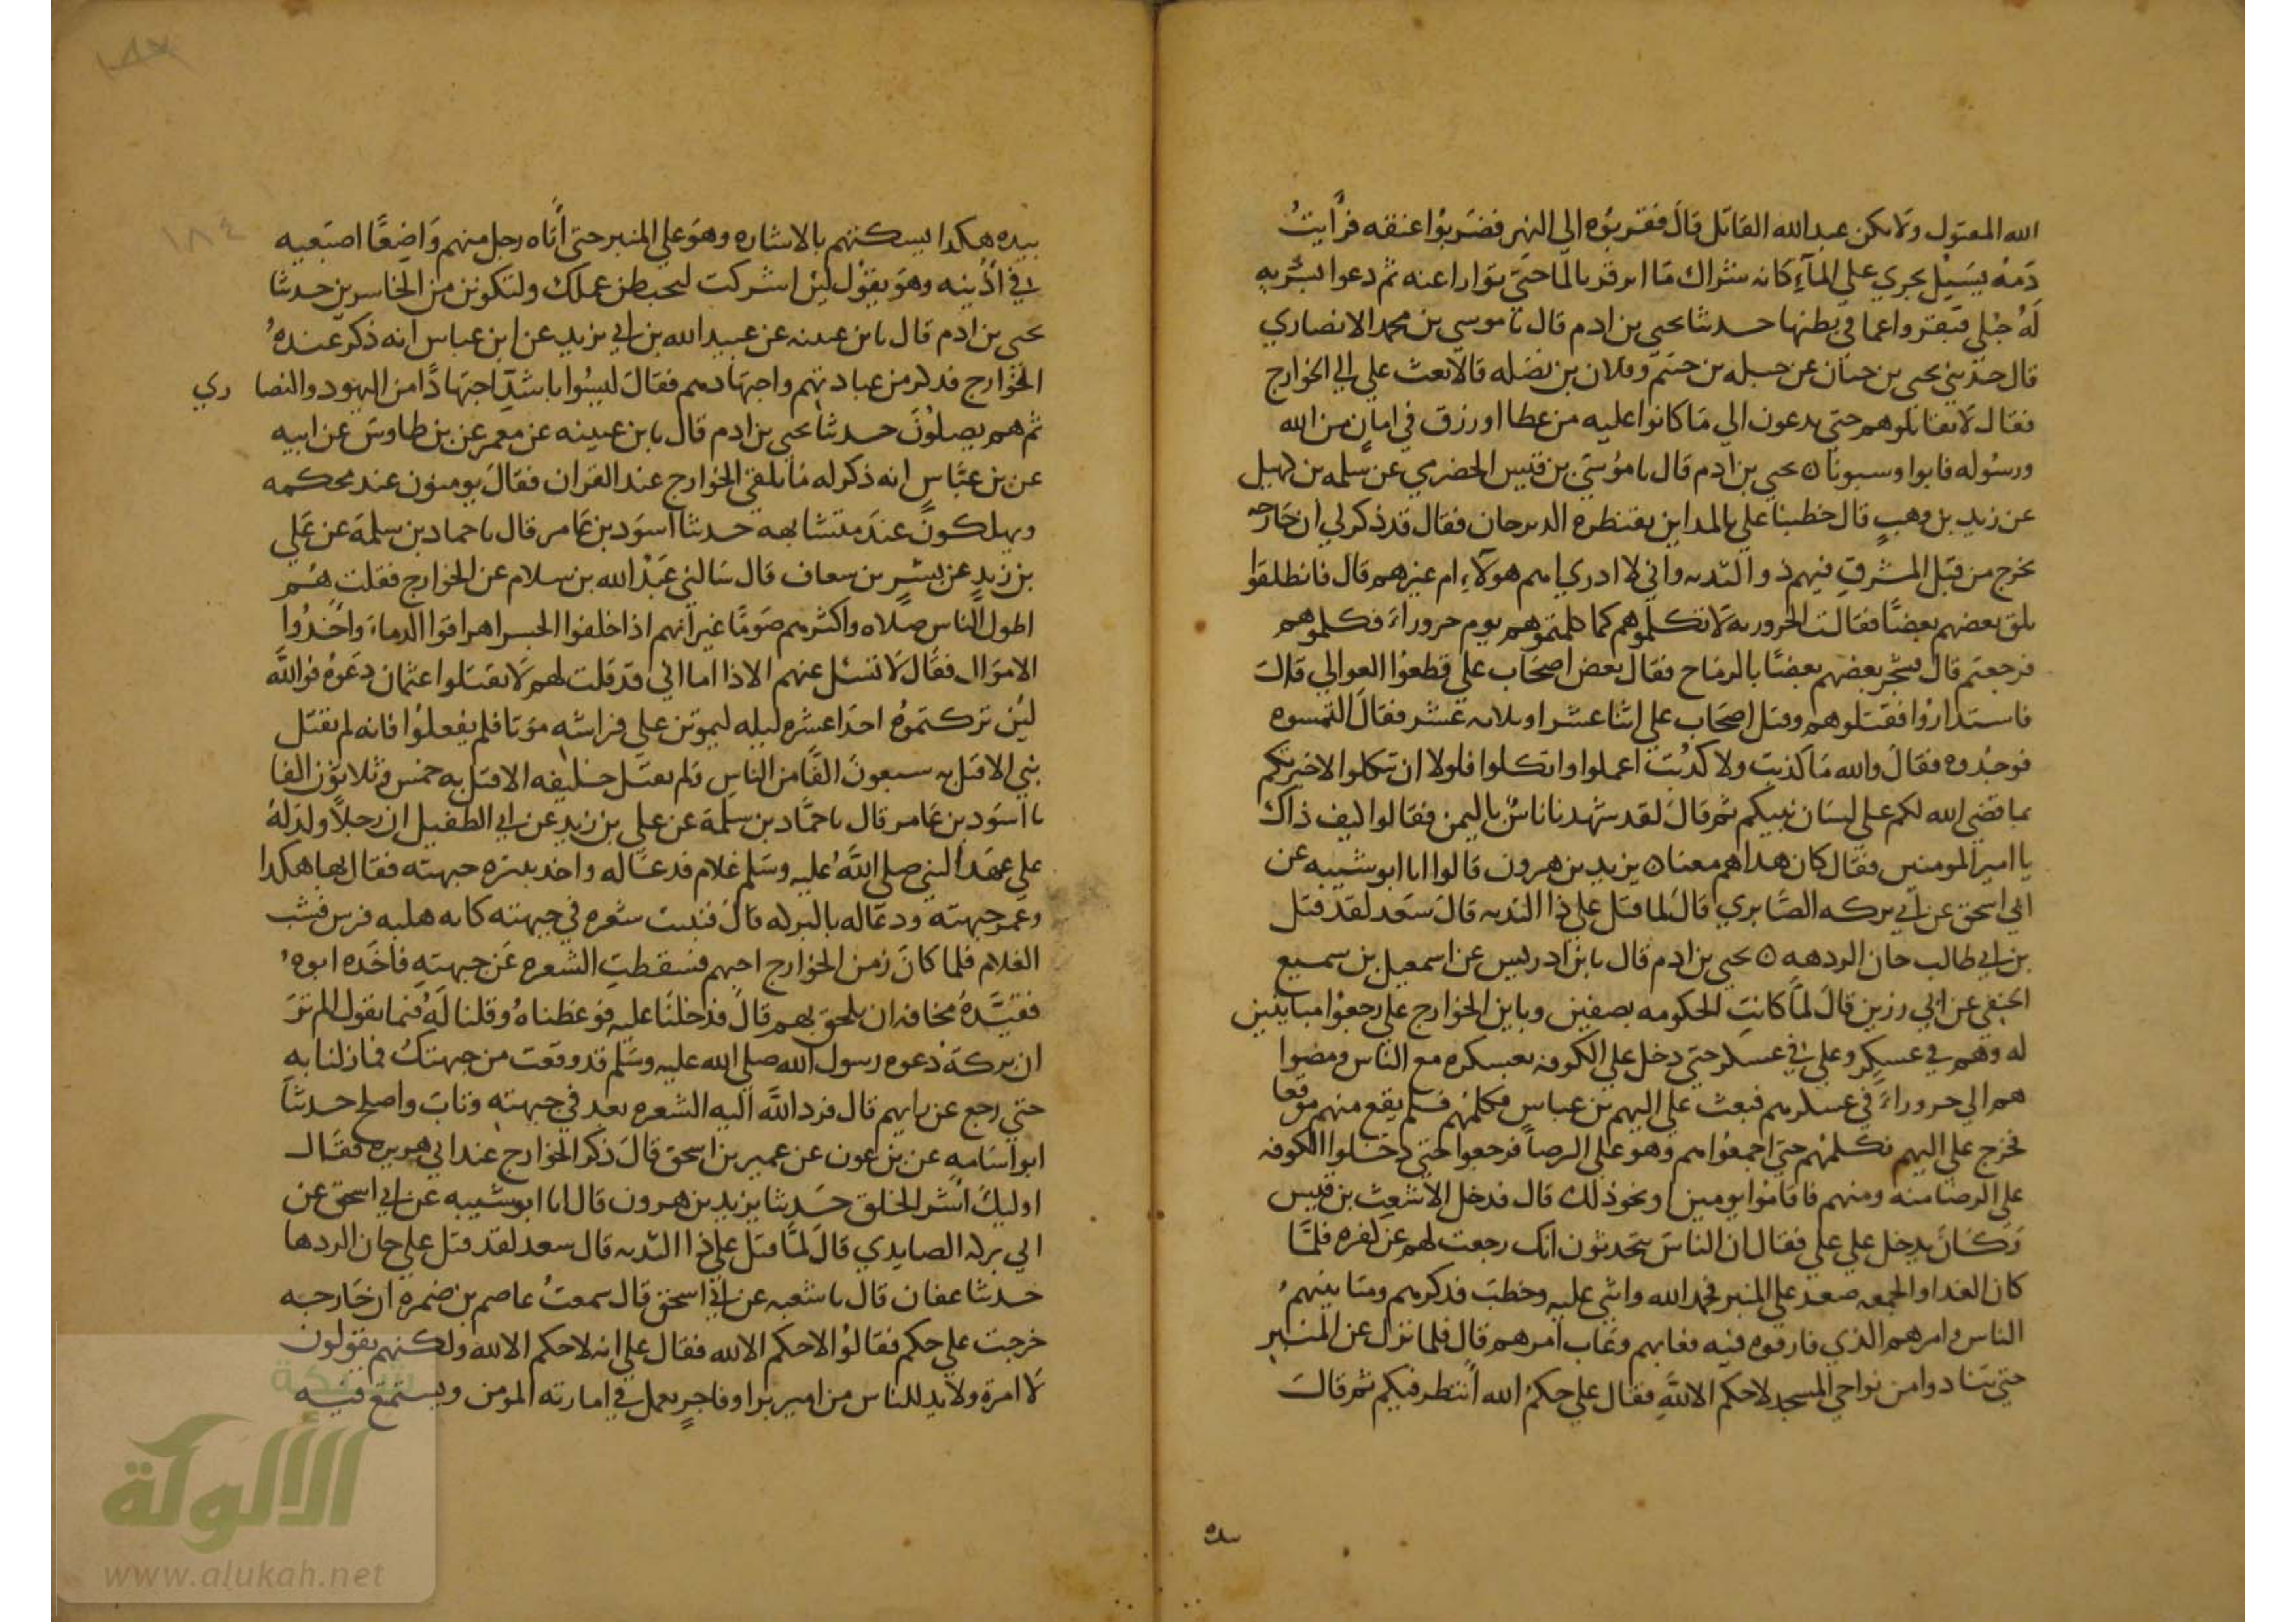 الله المقتول ولا تكن عبد الله القاتل قال فقربوه الي النهر فضربوا عنقه فرايت
دمه يسيل يجري علي الماء كانه شراك ما ابدقر بالما حتي توارا عنه ثم دعوا بسريه
له حبلي فبقروا عما في بطنها حدثنا يحيي بن ادم قال نا موسي بن محمد الانصاري
قال حدثني يحيي بن حسان عن جبله بن حثيم وفلان بن نضله قالا بعث علي الي الخوارج
فقال لا تقاتلوهم حتي يدعون الي ما كانوا عليه من عطا او رزق في امان من الله
ورسوله فابوا وسبونا ه يحيي بن ادم قال نا موسي بن قيس الحضرمي عن سلمه بن كهيل
عن زيد بن وهب قال خطبنا علي بالمداين بقنطره الديرجان فقال قد ذكر لي ان خارجه
تخرج من قبل المشرق فيهم ذو الثديه واني لا ادري امم هولاء ام غيرهم قال فانطلقوا
يلق بعضهم بعضا فقالت الحروريه لا تكلموهم كما كلمتموهم يوم حروراء فكلموهم
فرجعتم قال فشجر بعضهم بعضا بالرماح فقال بعض اصحاب علي قطعوا العوالي قال
فاستداروا فقتلوهم وقتل اصحاب علي اثنا عشر او ثلاثه عشر فقال التمسوه
فوجدوه فقال والله ما كذبت ولا كذبت اعملوا واتكلوا فلولا ان تتكلوا لاخبرتكم
بما قضي الله لكم علي لسان نبيكم ثم قال لقد شهدنا ناس باليمن فقالوا كيف ذاك
يا امير المومنين فقال كان هداهم معنا ه يزيد بن هرون قالوا انا ابو شيبه عن
ابي اسحق عن ابي بركه الصابري قال لما قتل علي ذا الثديه قال سعد لقد قتل
بن ابي طالب جان الردهه ه يحيي بن ادم قال نا بن ادريس عن اسمعيل بن سميع
الحنفي عن ابي رزين قال لما كانت الحكومه بصفين وباين الخوارج علي رجعوا مباينين
له وهم في عسكر وعلي في عسكر حتي دخل علي الكوفه بعسكره مع الناس ومضوا
هم الي حروراء في عسكرهم فبعث علي اليهم بن عباس فكلمهم فلم يقع منهم موقعا
فخرج علي اليهم فكلمهم حتي اجمعوا هم وهو علي الرضا فرجعوا حتي دخلوا الكوفه
علي الرضا منه ومنهم فاقاموا يومين او نحو ذلك قال فدخل الاشعث بن قيس
وكان يدخل علي علي فقال ان الناس يتحدثون انك رجعت لهم عن كفره فلما
كان الغد او الجمعه صعد علي المنبر فحمد الله واثني عليه وخطب فذكرهم ومباينتهم
الناس و امرهم الذي فارقوه فيه فعابهم وعاب امرهم قال فلما نزل عن المنبر
حتي تنادوا من نواحي المسجد لا حكم الا لله فقال علي حكم الله انتظر فيكم ثم قال
بيده
١٨٤
بيده هكذا يسكتهم بالاشاره وهو علي المنبر حتي اتاه رجل منهم واضعا اصبعيه
في اذنيه وهو يقول لئن اشركت ليحبطن عملك ولتكونن من الخاسرين حدثنا
يحيي بن ادم قال نا بن عيينه عن عبيد الله بن ابي يزيد عن ابن عباس انه ذكر عنده
الخوارج فذكر من عبادتهم واجتهادهم فقال ليسوا باشد اجتهادا من اليهود والنصاري
ثم هم يصلون حدثنا يحيي بن ادم قال نا بن عيينه عن معمر عن بن طاوس عن ابيه
عن بن عباس انه ذكر له ما يلقي الخوارج عند القران فقال يومنون عند محكمه
ويهلكون عند متشابهه حدثنا اسود بن عامر قال نا حماد بن سلمة عن علي
بن زيد عن بشر بن سعاف قال سالني عبد الله بن سلام عن الخوارج فقلت هم
اطول الناس صلاه واكثرهم صوما غير انهم اذا خلفوا الجسر اهراقوا الدماء واخذوا
الاموال فقال لا تسل عنهم الا ذا اما اني قد قلت لهم لا تقتلوا عثمان دعوه فوالله
لئن تركتموه احدا عشره ليله ليموتن علي فراشه موتا فلم يفعلوا فانه لم يقتل
نبي الا قتل به سبعون الفا من الناس ولم يقتل خليفه الا قتل به خمس وثلاثون الفا
نا اسود بن عامر قال نا حماد بن سلمة عن علي بن زيد عن ابي الطفيل ان رجلا ولد له
علي عهد النبي صلي الله عليه وسلم غلام فدعا له واخذ ببشره جبهته فقال بها هكذا
وغمز جبهته ودعا له بالبركه قال فنبتت شعره في جبهته كانه هلبه فرس فشب
الغلام فلما كان زمن الخوارج احبهم فسقطت الشعره عن جبهته فاخذه ابوه
فقيده مخافه ان يلحق بهم قال فدخلنا عليه فوعظناه وقلنا له فيما نقول الم تر
ان بركة دعوه رسول الله صلي الله عليه وسلم قد وقعت من جبهتك فما زلنا به
حتي رجع عن رايهم قال فرد الله اليه الشعره بعد في جبهته وتاب واصلح حدثنا
ابو اسامه عن بن عون عن عمير بن اسحق قال ذكر الخوارج عند ابي هريره فقال
اوليك اشر الخلق حدثنا يزيد بن هرون قال انا ابو شيبه عن ابي اسحق عن
ابي بركه الصايدي قال لما قتل علي ذا الثديه قال سعد لقد قتل علي جان الردها
حدثنا عفان قال نا شعبه عن ابي اسحق قال سمعت عاصم بن ضمره ان خارجه
خرجت علي حكم فقالوا لا حكم الا لله فقال علي انه لا حكم الا لله ولكنهم يقولون
لا امرة ولا بد للناس من امير برا او فاجر يعمل في امارته المومن ويستمتع فيه
شبكة
الألوكة
www.alukah.net